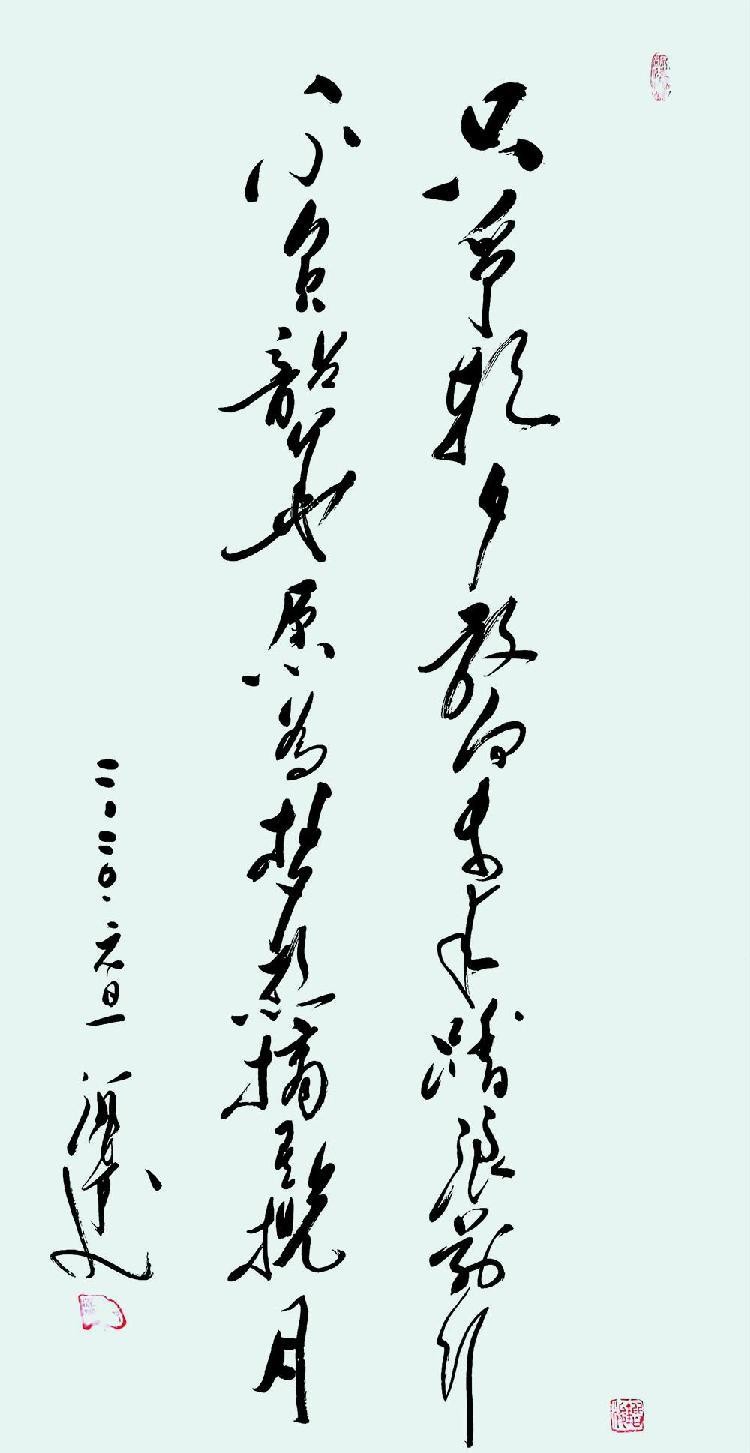 只争朝夕敢向未来踏浪前行
不负韶华愿为梦想摘星揽月
二〇二〇.元旦